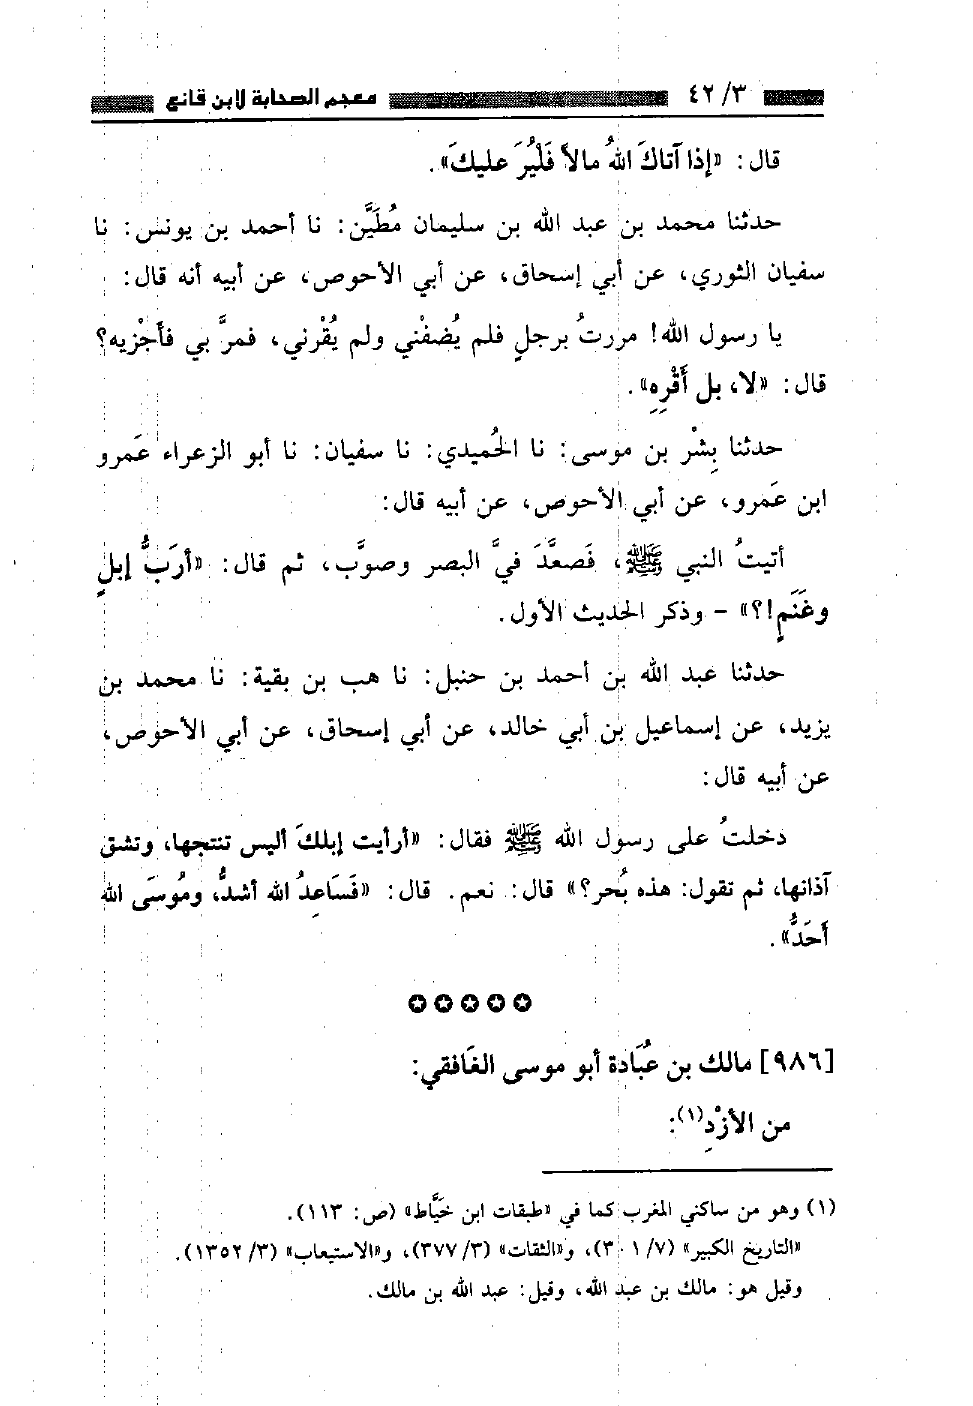 ٤٢/٣ معجم الصحابة لابن قانع
قال: «إذا آتاكَ اللهُ مالاً فَلْيُرَ عليكَ».
حدثنا محمد بن عبد الله بن سليمان مُطَيَّن: نا أحمد بن يونس: نا
سفيان الثوري، عن أبي إسحاق، عن أبي الأحوص، عن أبيه أنه قال:
يا رسول الله! مررتُ برجلٍ فلم يُضفْني ولم يُقْرني، فمرَّ بي فأَجْزيه؟
قال: «لا، بل أَقْرِهِ».
حدثنا بِشْر بن موسى: نا الحُميدي: نا سفيان: نا أبو الزعراء عَمرو
ابن عَمرو، عن أبي الأحوص، عن أبيه قال:
أتيتُ النبي ﷺ، فَصعَّدَ فيَّ البصر وصوَّب، ثم قال: «أرَبُّ إبلٍ
وغَنَمٍ!؟» - وذكر الحديث الأول.
حدثنا عبد الله بن أحمد بن حنبل: نا هب بن بقية: نا محمد بن
يزيد، عن إسماعيل بن أبي خالد، عن أبي إسحاق، عن أبي الأحوص،
عن أبيه قال:
دخلتُ على رسول الله ﷺ فقال: «أرأيت إبلكَ أليس تنتجها، وتشق
آذانها، ثم تقول: هذه بُحر؟» قال: نعم. قال: «فَسَاعِدُ الله أشدُّ، ومُوسَى الله
أَحَدُّ».
✪✪✪✪✪
[٩٨٦] مالك بن عُبَادة أبو موسى الغَافقي:
من الأزْدِ(١):
(١) وهو من ساكني المغرب كما في «طبقات ابن خَيَّاط» (ص: ١١٣).
«التاريخ الكبير» (٧/ ٣٠١)، و«الثقات» (٣/ ٣٧٧)، و«الاستيعاب» (٣/ ١٣٥٢).
وقيل هو: مالك بن عبد الله، وقيل: عبد الله بن مالك.